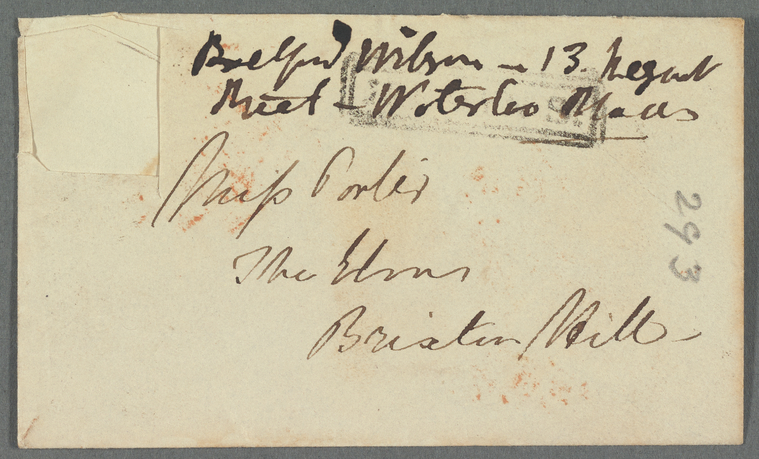 Belford Wilson – 13. Regent
Street – Waterloo Place
Miss Porter
The Elms
Brixton Hill –
293